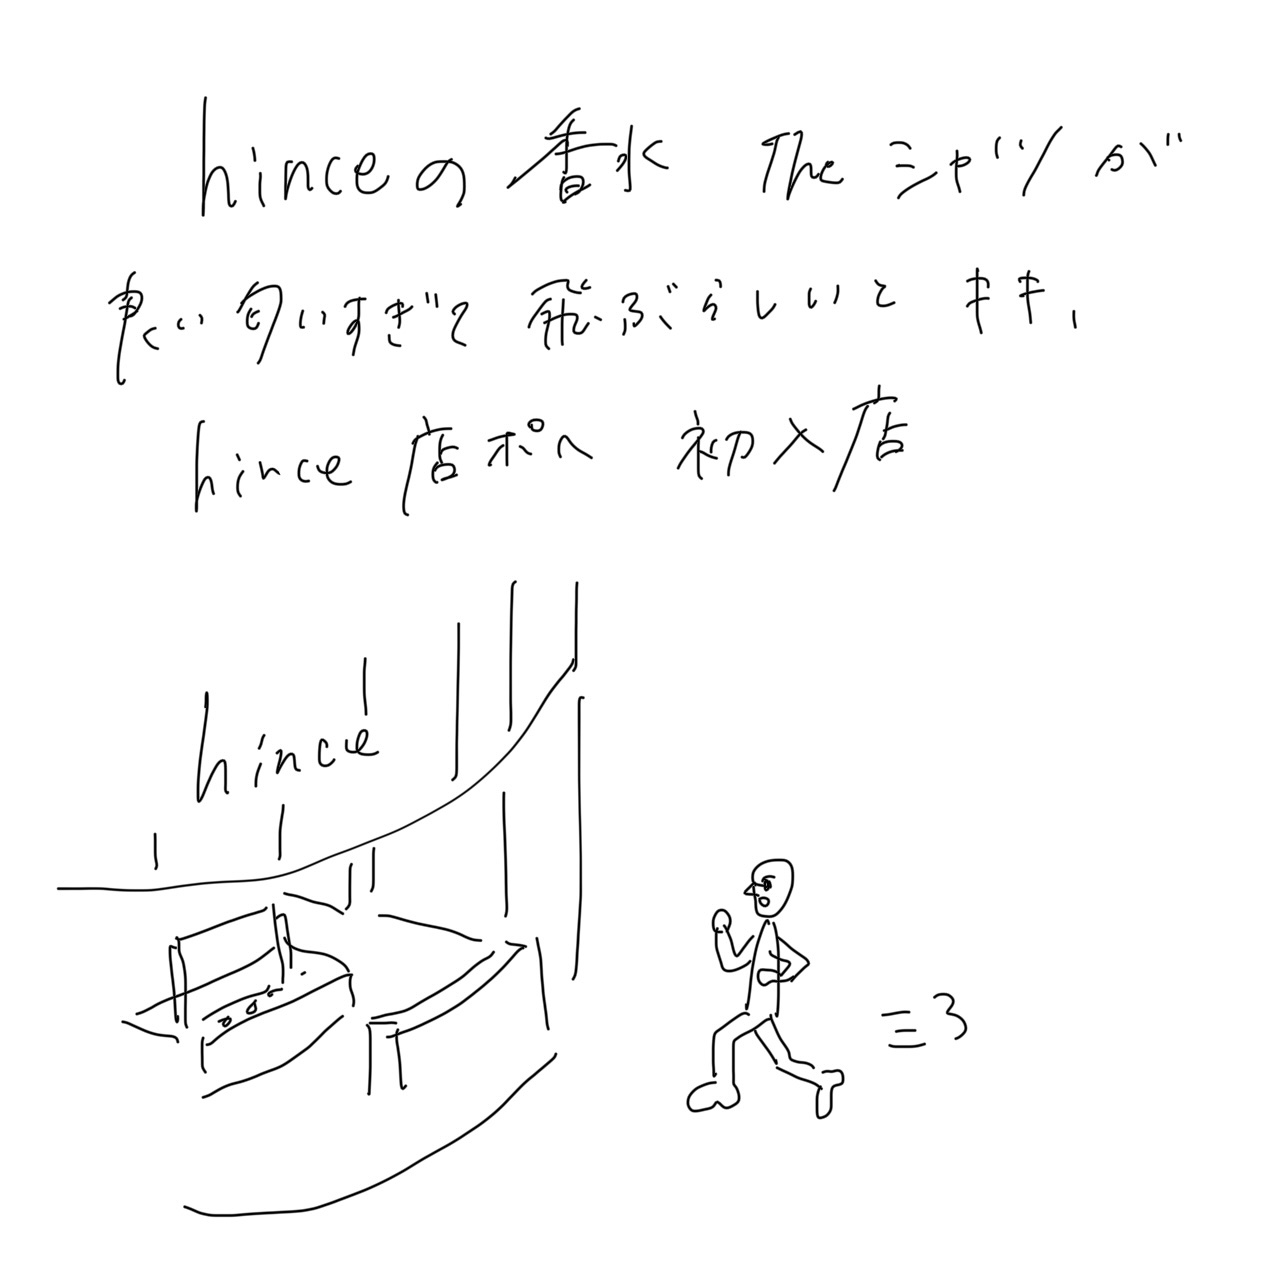 hinceの香水 The シャツが
良い匂いすぎて飛ぶらしいとキキ、
hince 店ポへ 初入店
hince
三3